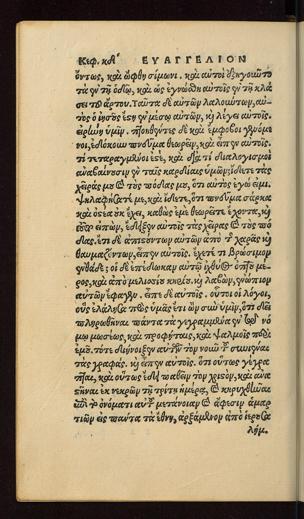 Κεφ. κδʹ ΕΥΑΓΓΕΛΙΟΝ
ὄντως, καὶ ὤφθη σίμωνι. καὶ αὐτοὶ ἐξηγοῦντο
τὰ ἐν τῇ ὁδῷ, καὶ ὡς ἐγνώσθη αὐτοῖς ἐν τῇ κλά
σει τοῦ ἄρτου. Ταῦτα δὲ αὐτῶν λαλούντων, αὐ-
τὸς ὁ ἰησοῦς ἔστη ἐν μέσῳ αὐτῶν, καὶ λέγει αὐτοῖς.
εἰρήνη ὑμῖν. πτοηθέντες δὲ καὶ ἔμφοβοι γενόμε
νοι, ἐδόκουν πνεῦμα θεωρεῖν, καὶ εἶπεν αὐτοῖς.
τί τεταραγμένοι ἐστὲ, καὶ διὰ τί διαλογισμοὶ
ἀναβαίνουσιν ἐν ταῖς καρδίαις ὑμῶν; ἴδετε τὰς
χεῖράς μου καὶ τοὺς πόδας μου, ὅτι αὐτὸς ἐγώ εἰμι.
ψηλαφήσατέ με, καὶ ἴδετε, ὅτι πνεῦμα σάρκα
καὶ ὀστέα οὐκ ἔχει, καθὼς ἐμὲ θεωρεῖτε ἔχοντα, καὶ
τοῦτο εἰπὼν, ἐπέδειξεν αὐτοῖς τὰς χεῖρας καὶ τοὺς πό
δας. ἔτι δὲ ἀπιστούντων αὐτῶν ἀπὸ τῆς χαρᾶς καὶ
θαυμαζόντων, εἶπεν αὐτοῖς. ἔχετέ τι βρώσιμον
ἐνθάδε; οἱ δὲ ἐπέδωκαν αὐτῷ ἰχθύος ὀπτοῦ μέ
ρος, καὶ ἀπὸ μελισσίου κηρίου. καὶ λαβὼν, ἐνώπιον
αὐτῶν ἔφαγεν. εἶπε δὲ αὐτοῖς. οὗτοι οἱ λόγοι,
οὓς ἐλάλησα πρὸς ὑμᾶς ἔτι ὢν σὺν ὑμῖν, ὅτι δεῖ
πληρωθῆναι πάντα τὰ γεγραμμένα ἐν τῷ νό
μῳ μωσέως, καὶ προφήταις, καὶ ψαλμοῖς περὶ
ἐμοῦ. τότε διήνοιξεν αὐτῶν τὸν νοῦν τοῦ συνιέναι
τὰς γραφάς. καὶ εἶπεν αὐτοῖς. ὅτι οὕτως γέγρα
πται, καὶ οὕτως ἔδει παθεῖν τὸν χριστὸν, καὶ ἀνα
στῆναι ἐκ νεκρῶν τῇ τρίτῃ ἡμέρᾳ, καὶ κηρυχθῆναι
ἐπὶ τῷ ὀνόματι αὐτοῦ μετάνοιαν καὶ ἄφεσιν ἁμαρ
τιῶν εἰς πάντα τὰ ἔθνη, ἀρξάμενον ἀπὸ ἱερουσα
λήμ.